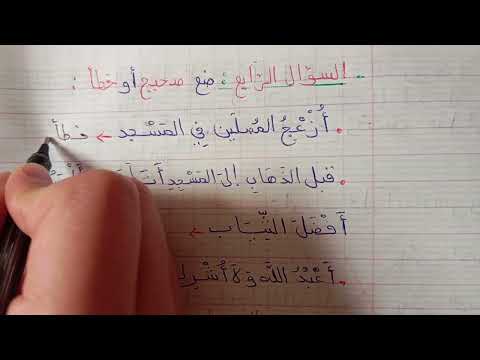 السؤال الرابع : ضع صحيح أو خطأ :
. أُزْعِجُ المُصَلين في المَسْجد ← خطأ
. قبل الذهاب إلى المَسْجِدِ
أَفْضَلَ الثِّيَاب ←
. أَعْبُدُ اللَّه وَلاَ أُشْرِك